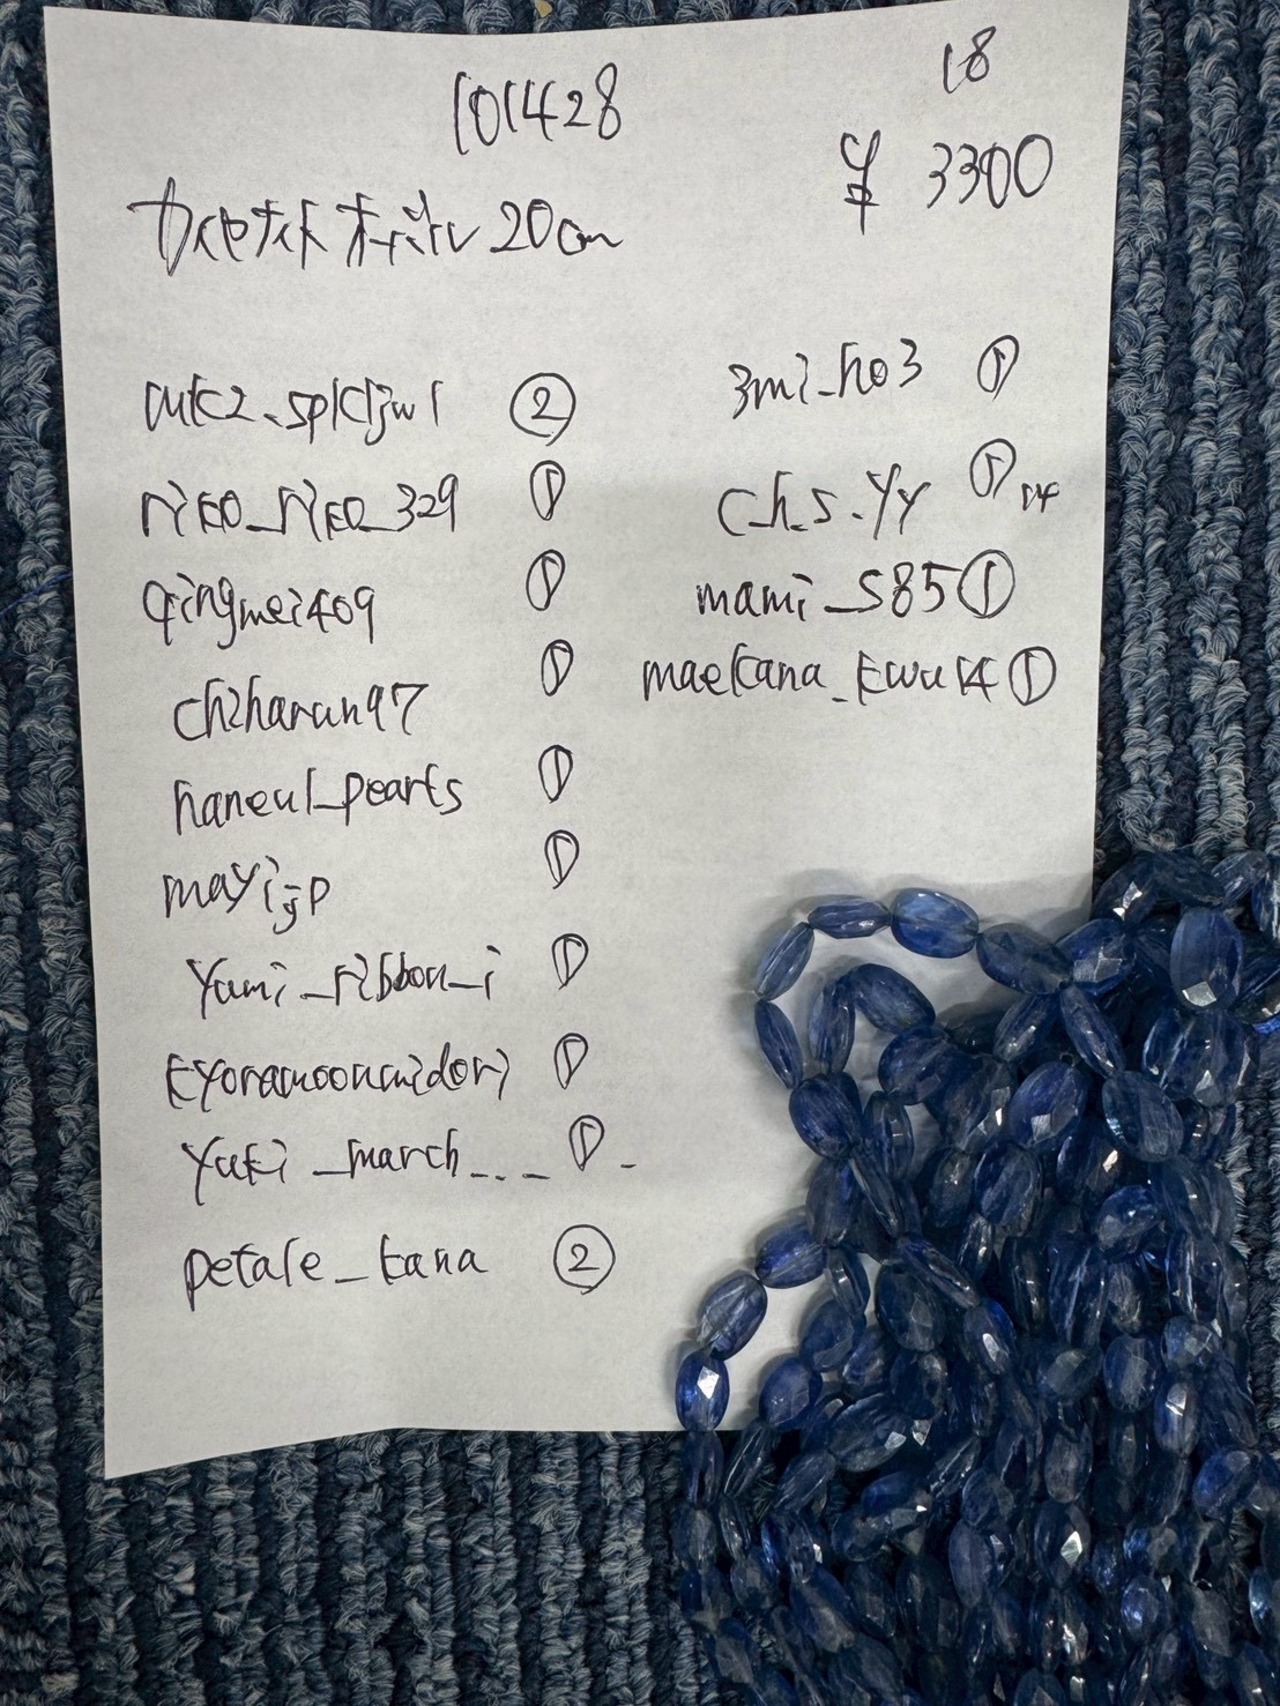 101428
18
¥ 3300
20cm
②
riko_riko_329 ①
qingmei409 ①
chiharun97 ①
haneul_pearls ①
mayi_jp ①
yumi_ribbon_i ①
kyoramoonmidori ①
yuki_march_._ _ ① _
petale_kana ②
3mi_ho3 ①
c_h_s_yy ①
mami_s85 ①
maekana_kwu14 ①